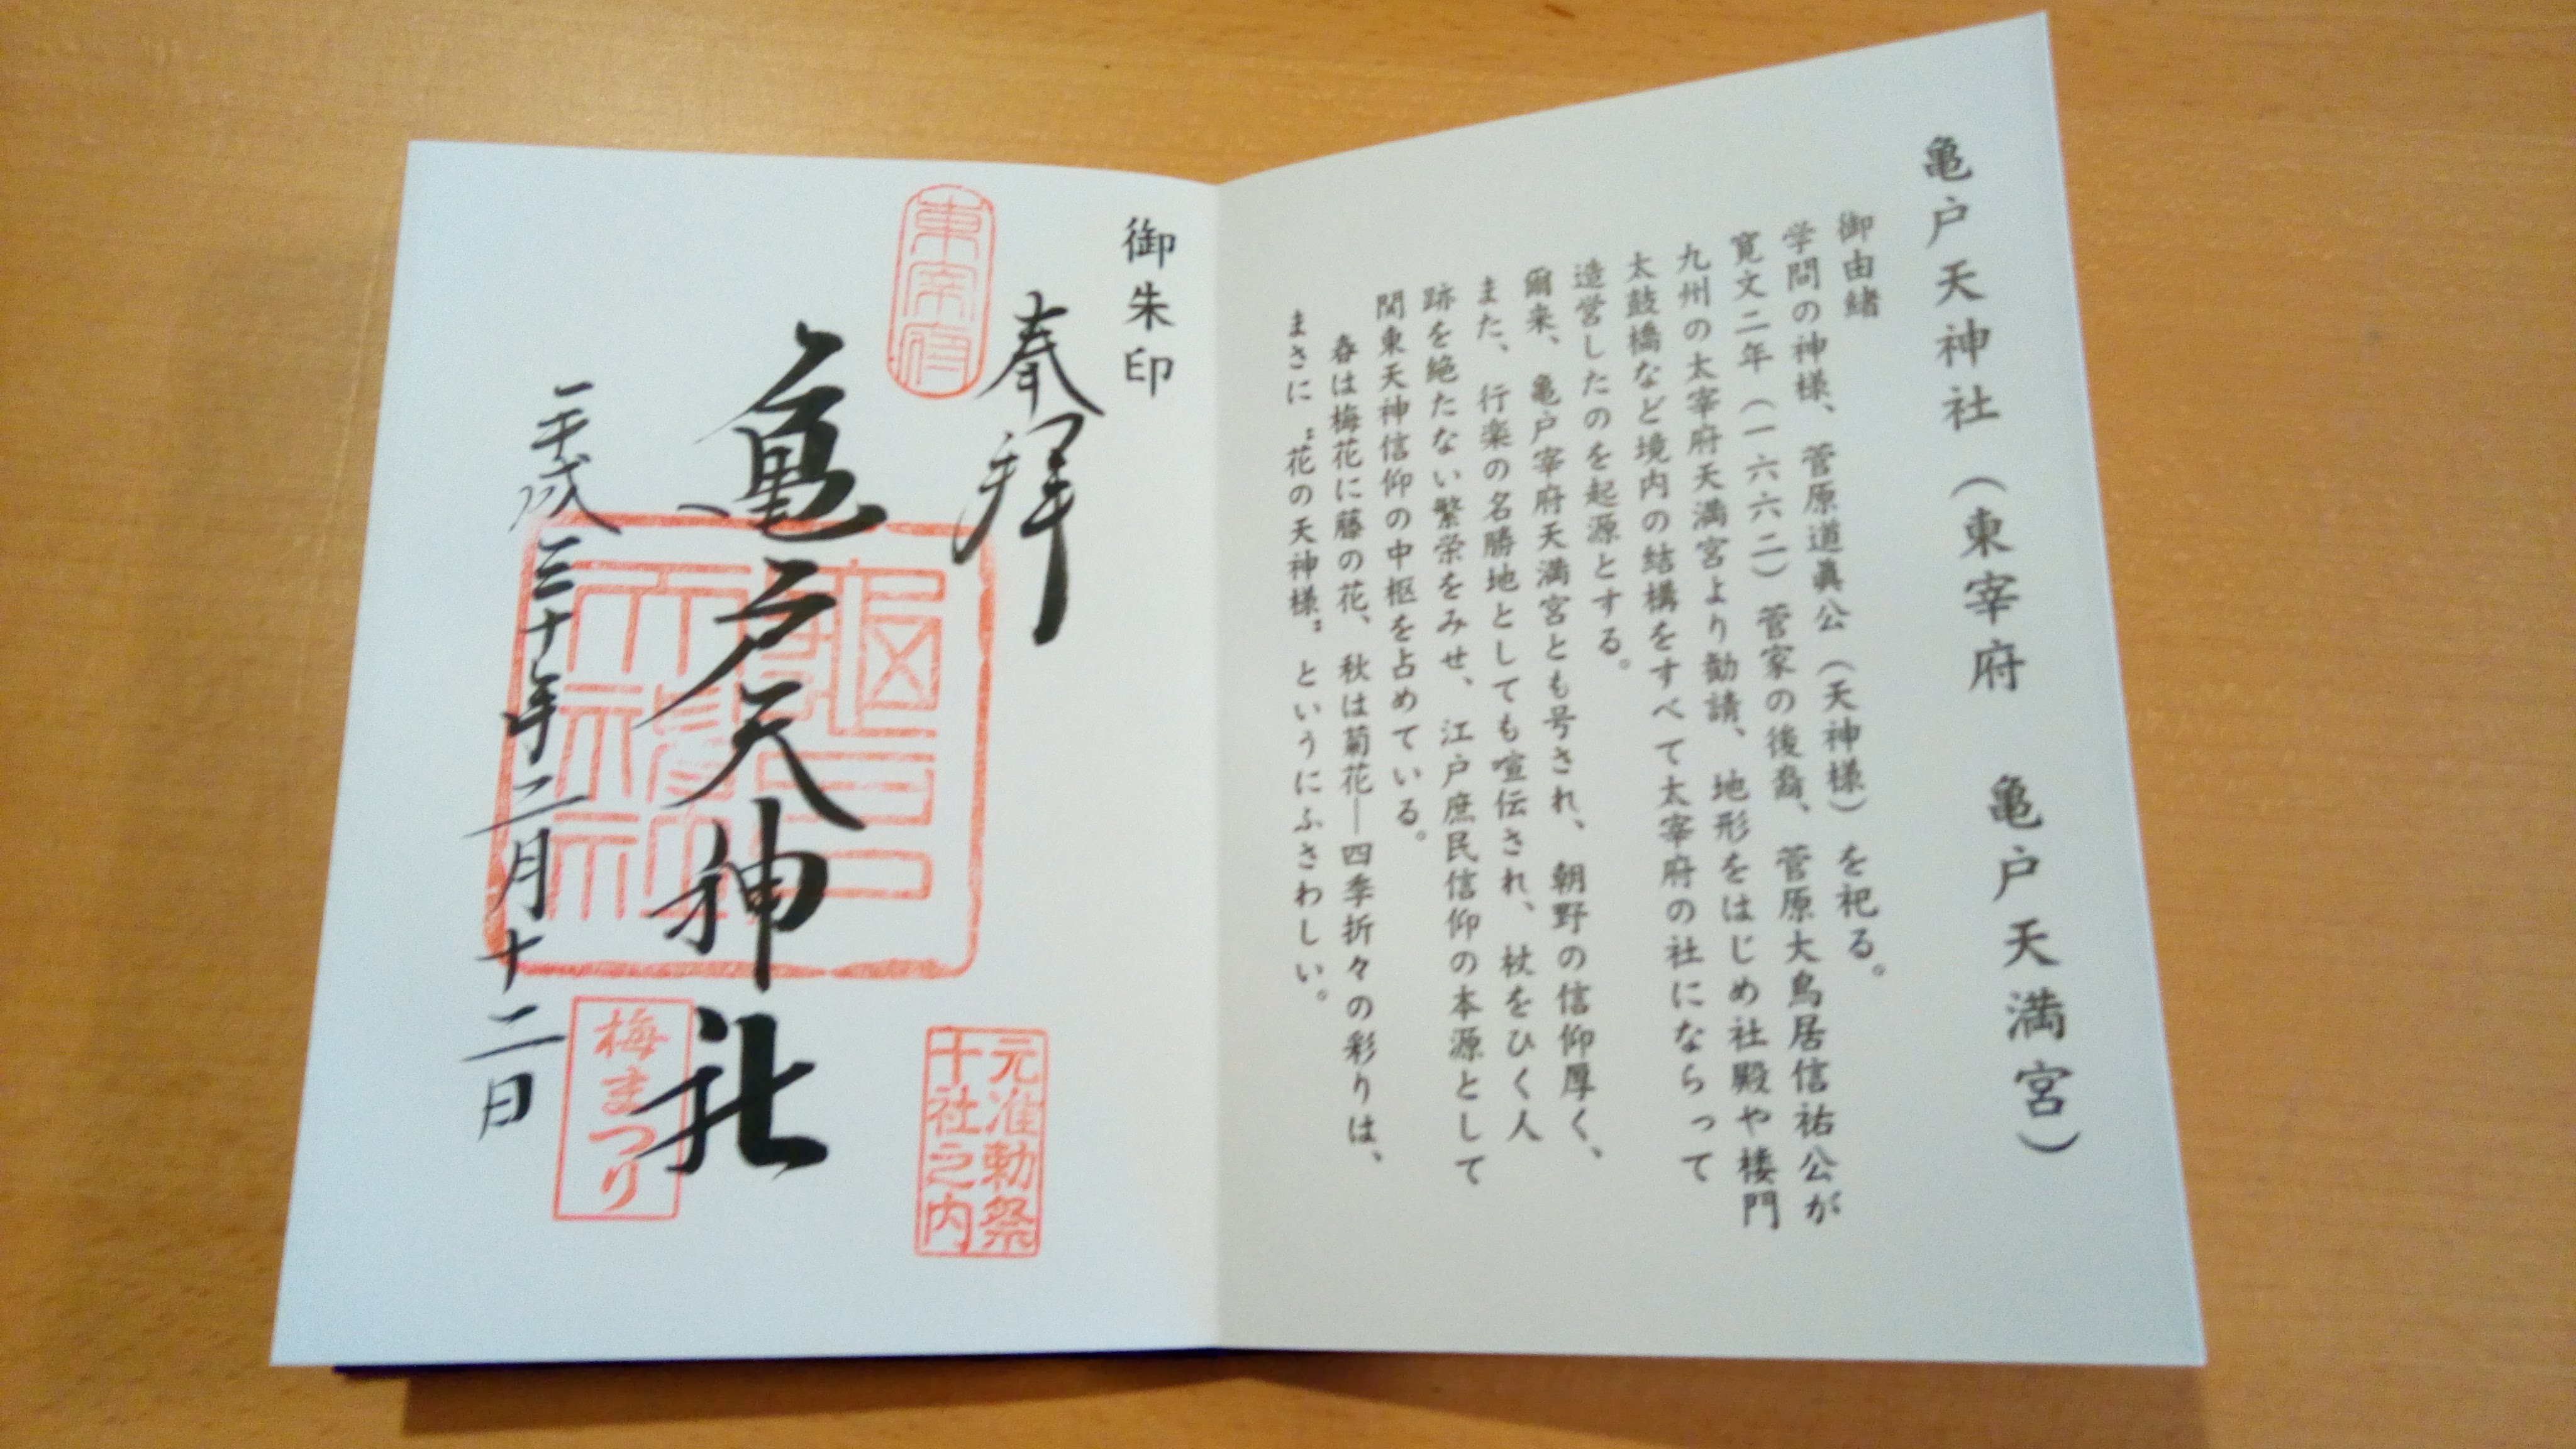 亀戸天神社（東宰府　亀戸天満宮）
御由緒
学問の神様、菅原道眞公（天神様）を祀る。
寛文二年（一六六二）菅家の後裔、菅原大鳥居信祐公が
九州の太宰府天満宮より勧請、地形をはじめ社殿や楼門
太鼓橋など境内の結構をすべて太宰府の社にならって
造営したのを起源とする。
爾来、亀戸宰府天満宮とも号され、朝野の信仰厚く、
また、行楽の名勝地としても喧伝され、杖をひく人
跡を絶たない繁栄をみせ、江戸庶民信仰の本源として
関東天神信仰の中枢を占めている。
春は梅花に藤の花、秋は菊花―四季折々の彩りは、
まさに〝花の天神様〟というにふさわしい。
御朱印
奉拝
東宰府
亀戸天神社
亀戸天神社
元准勅祭
十社之内
梅まつり
平成三十年二月十二日